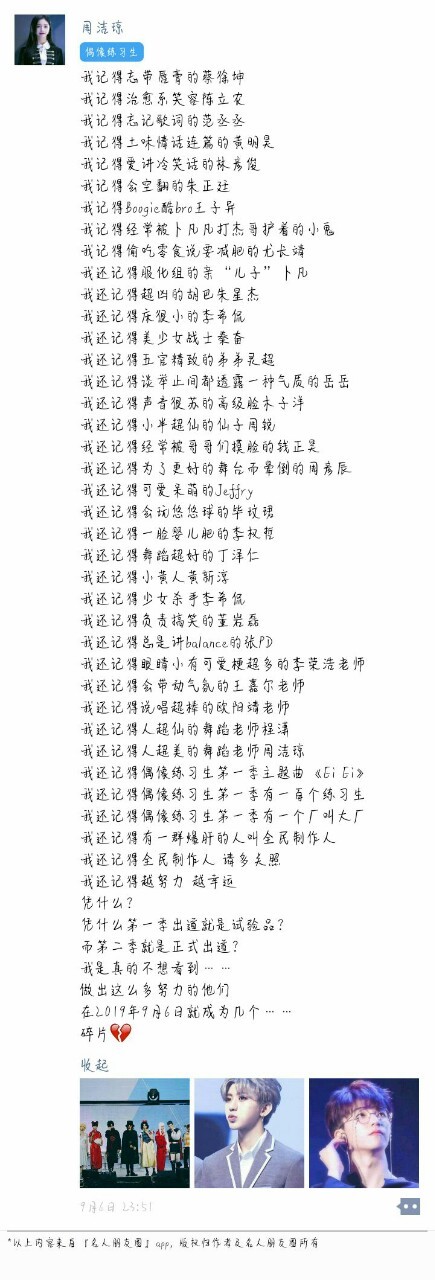 周洁琼
偶像练习生
我记得忘带唇膏的蔡徐坤
我记得治愈系笑容陈立农
我记得忘记歌词的范丞丞
我记得土味情话连篇的黄明昊
我记得爱讲冷笑话的林彦俊
我记得会空翻的朱正廷
我记得Boogie酷bro王子异
我记得经常被卜凡凡打杰哥护着的小鬼
我记得偷吃零食说要减肥的尤长靖
我还记得服化组的亲“儿子”卜凡
我还记得超凶的胡巴朱星杰
我还记得床很小的李希侃
我还记得美少女战士秦奋
我还记得五官精致的弟弟灵超
我还记得谈举止间都透露一种气质的岳岳
我还记得声音很苏的高级脸木子洋
我还记得小半超仙的仙子周锐
我还记得经常被哥哥们摸脸的钱正昊
我还记得为了更好的舞台而晕倒的周彦辰
我还记得可爱呆萌的Jeffry
我还记得会玩悠悠球的毕雯珺
我还记得一脸婴儿肥的李权哲
我还记得舞蹈超好的丁泽仁
我还记得小黄人黄新淳
我还记得少女杀手李希侃
我还记得负责搞笑的董岩磊
我还记得总是讲balance的张PD
我还记得眼睛小有可爱梗超多的李荣浩老师
我还记得会带动气氛的王嘉尔老师
我还记得说唱超棒的欧阳靖老师
我还记得人超仙的舞蹈老师程潇
我还记得人超美的舞蹈老师周洁琼
我还记得偶像练习生第一季主题曲《Ei Ei》
我还记得偶像练习生第一季有一百个练习生
我还记得偶像练习生第一季有一个厂叫大厂
我还记得有一群爆肝的人叫全民制作人
我还记得全民制作人 请多关照
我还记得越努力 越幸运
凭什么?
凭什么第一季出道就是试验品?
而第二季就是正式出道?
我是真的不想看到……
做出这么多努力的他们
在2019年9月6日就成为几个……
碎片💔
收起
9月6日 23:51
*以上内容来自『名人朋友圈』app,版权归作者及名人朋友圈所有